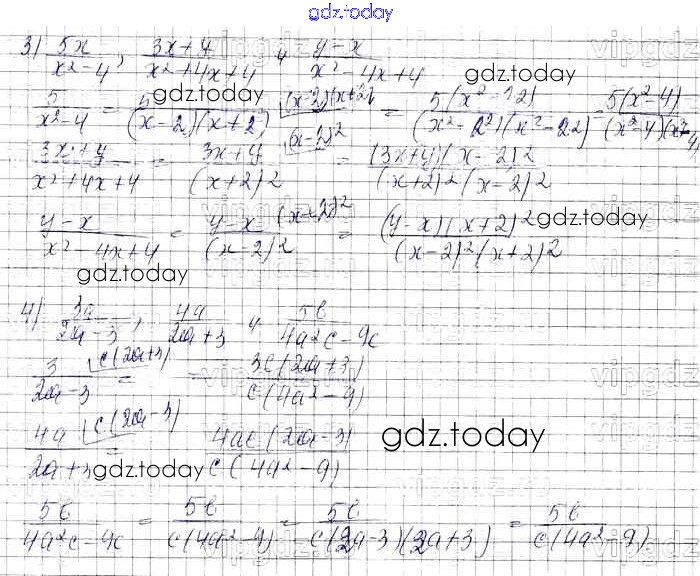 gdz.today
3) 5x/(x²-4), (3x+4)/(x²+4x+4) и (y-x)/(x²-4x+4) gdz.today
5/(x²-4) = 5 gdz.today /((x-2)(x+2)) (x-2)(x+2) = 5(x²-²2)/((x²-2²)(x²-22)) 5(x²-4)/((x²-4)(x²-4)
(3x+y)/(x²+4x+4) = (3x+y)/(x+2)2 (x-2)² = (3x+y)(x-2)2/((x+2)2(x-2)2
(y-x)/(x²-4x+4) = (y-x)/(x-2)2 (x+2)² = (y-x)(x+2)2/((x-2)²(x+2)2 gdz.today
gdz.today
4) 3a/(2a-3), 4a/(2a+3) и 5b/(4a²c-9c)
3/(2a-3) c(2a+3) = = 3c(2a+3)/(c(4a²-9)
4a/(2a+3) c(2a-3) gdz.today = 4ac(2a-3)/(c(4a²-9) gdz.today
5b/(4a²c-9c) = 5b/(c(4a²-9) = 5b/(c(2a-3)(2a+3) = 5b/(c(4a²-9)